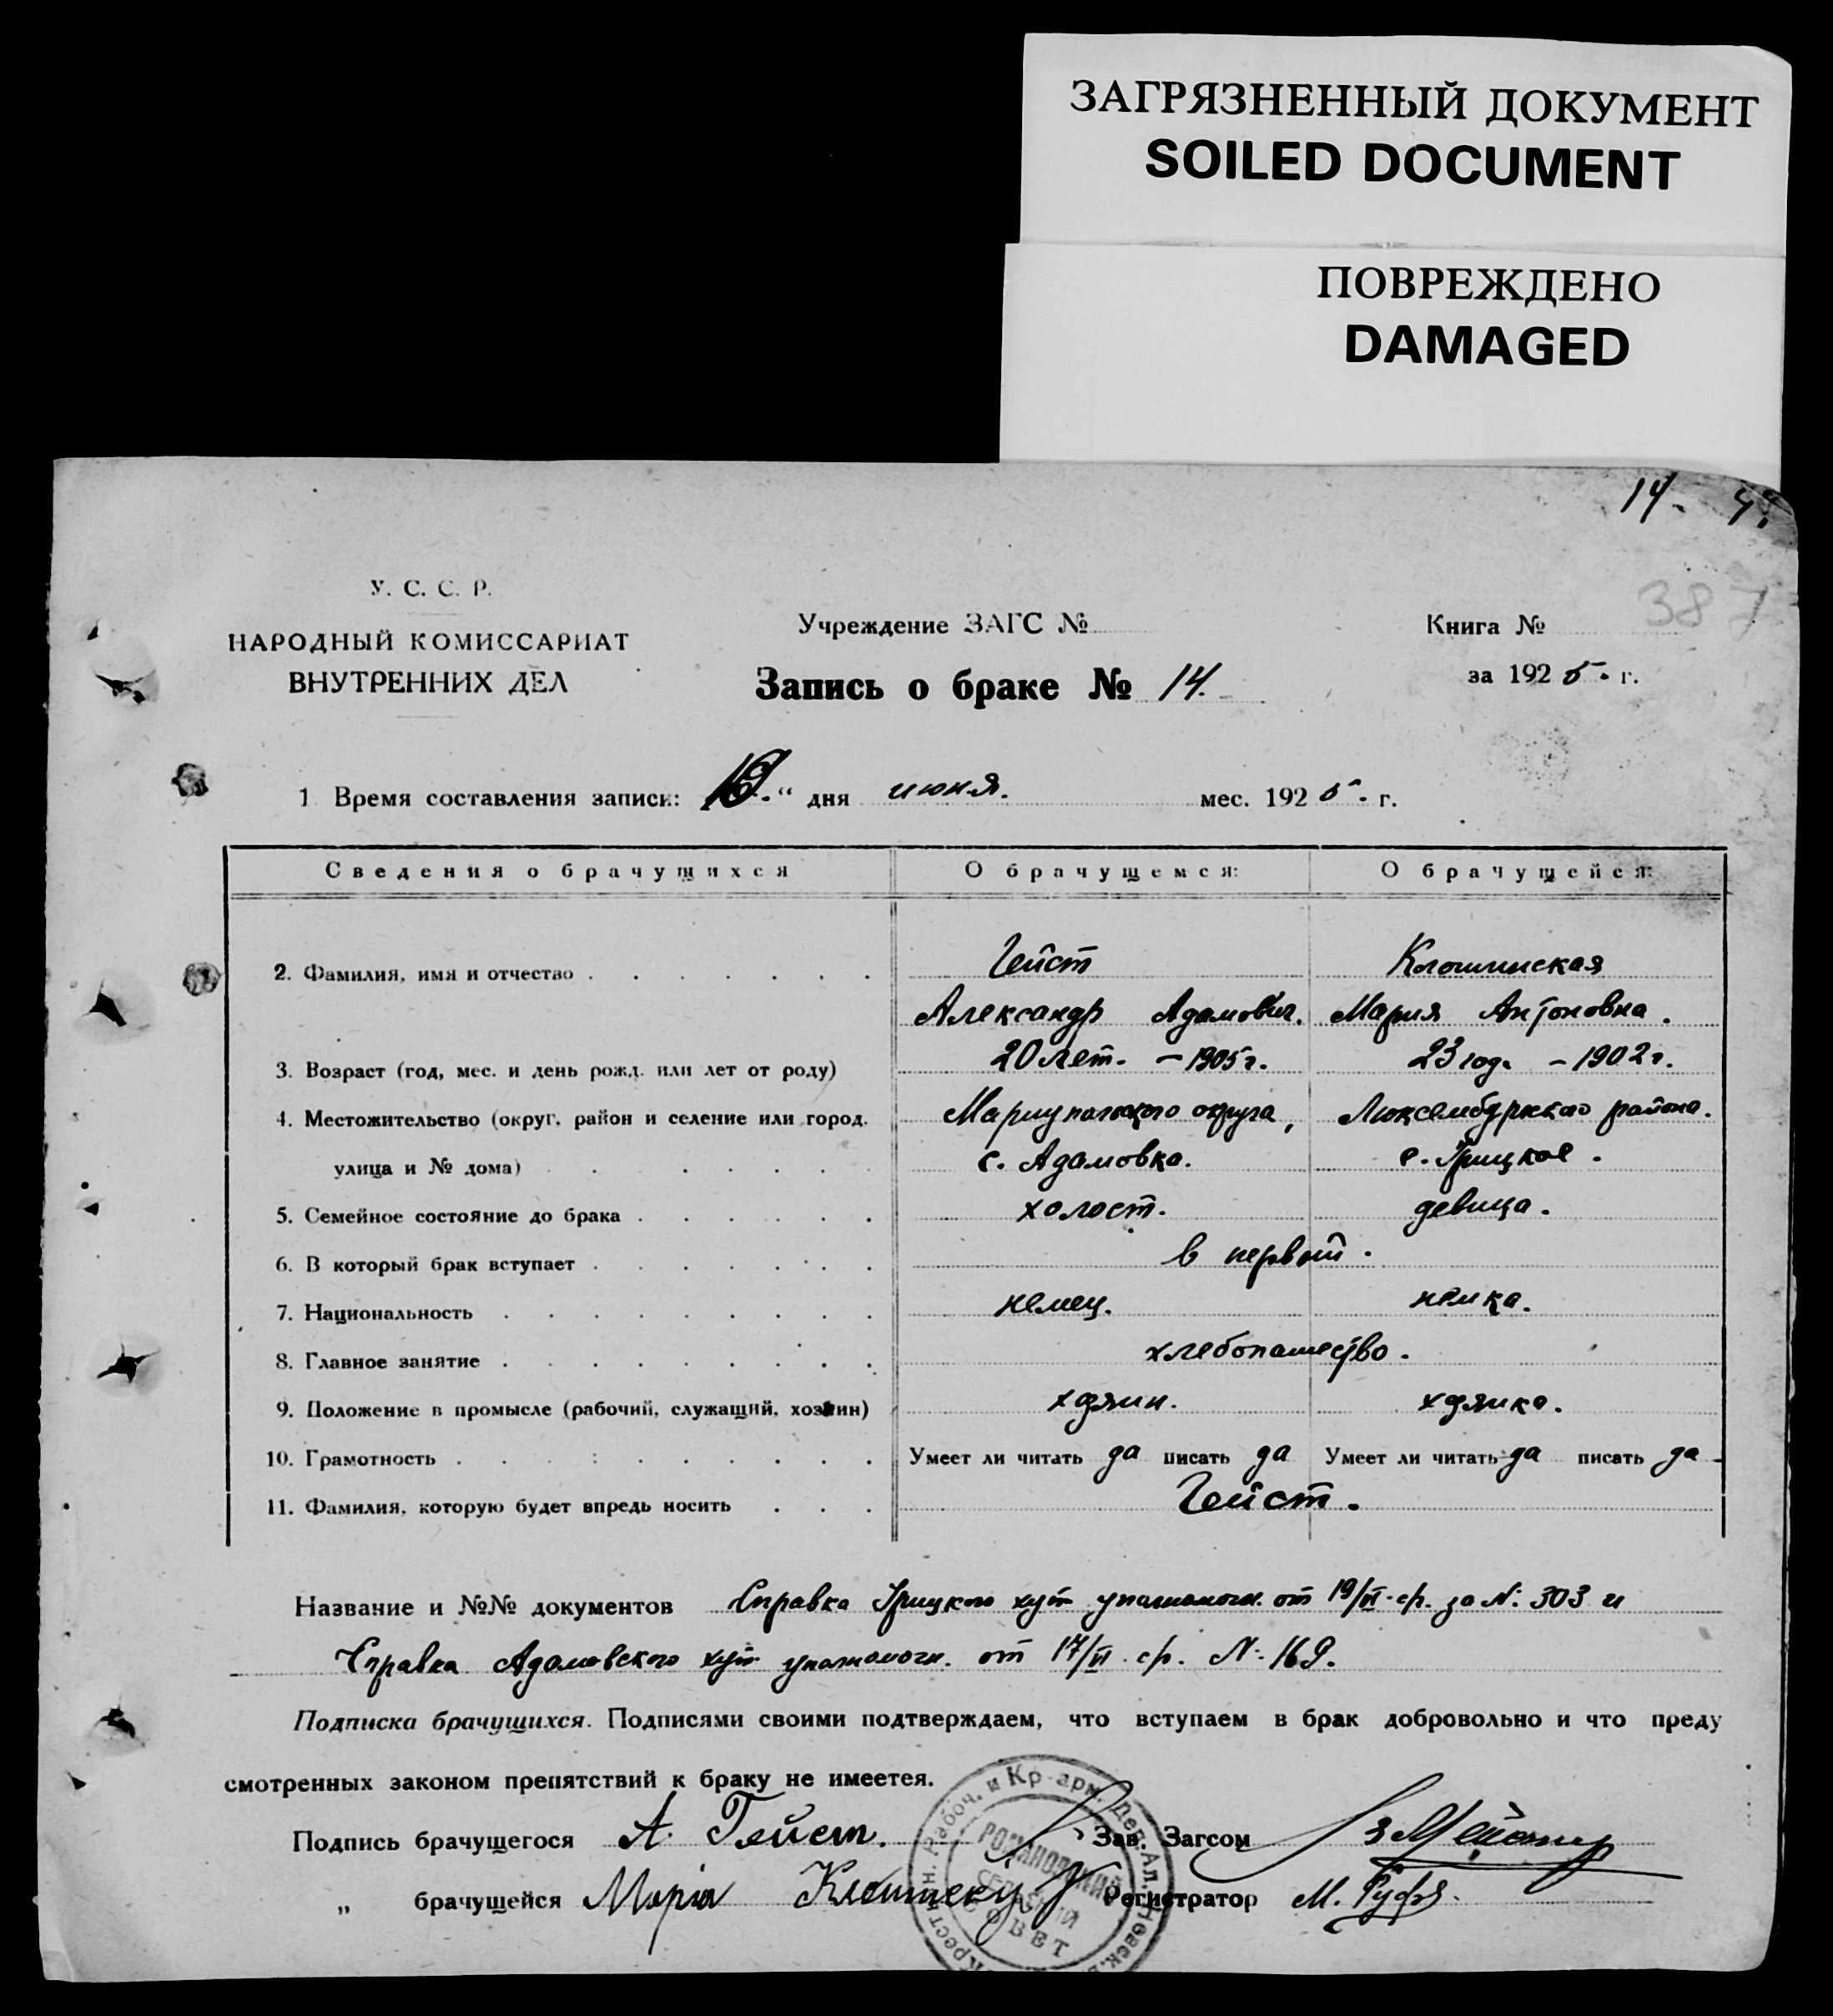 ЗАГРЯЗНЕННЫЙ ДОКУМЕНТ
SOILED DOCUMENT
ПОВРЕЖДЕНО
DAMAGED
14.
387
У. С. С. Р.
НАРОДНЫЙ КОМИССАРИАТ
ВНУТРЕННИХ ДЕЛ
Учреждение ЗАГС №
Книга №
Запись о браке № 14.
за 1925. г.
1 Время составления записи: “ дня июня. мес. 1925. г.
Сведения о брачущихся О брачущемся: О брачущейся:
2. Фамилия, имя и отчество Гейст
Александр Адамович. Мария Антоновна.
3. Возраст (год, мес. и день рожд. или лет от роду) 20 лет. – 1905 г. 23 год. – 1902 г.
4. Местожительство (округ, район и селение или город, Мариупольского округа, Люксембургского района.
улица и № дома) с. Адамовка. с. Грицкое.
5. Семейное состояние до брака холост. девица.
6. В который брак вступает в первый.
7. Национальность немец. немка.
8. Главное занятие хлебопашество.
9. Положение в промысле (рабочий, служащий, хозяин) хдяин. хдяйка.
10. Грамотность Умеет ли читать да писать да Умеет ли читать да писать да
11. Фамилия, которую будет впредь носить Гейст.
Название и №№ документов Справка Грицкого хут уполномоч. от 19/VI ср. за №: 303 и
Справка Адамовского хут уполномоч. от 17/VI ср. №: 169.
Подписка брачущихся. Подписями своими подтверждаем, что вступаем в брак добровольно и что преду
смотренных законом препятствий к браку не имеется.
Подпись брачущегося А. Гейст. Зав. Загсом
„ брачущейся Марія Регистратор М.
Рабоч. и Кр-арм. Деп. Ал. Невск.
РОМАНОВСКИЙ
СЕЛЬСКИЙ
СОВЕТ